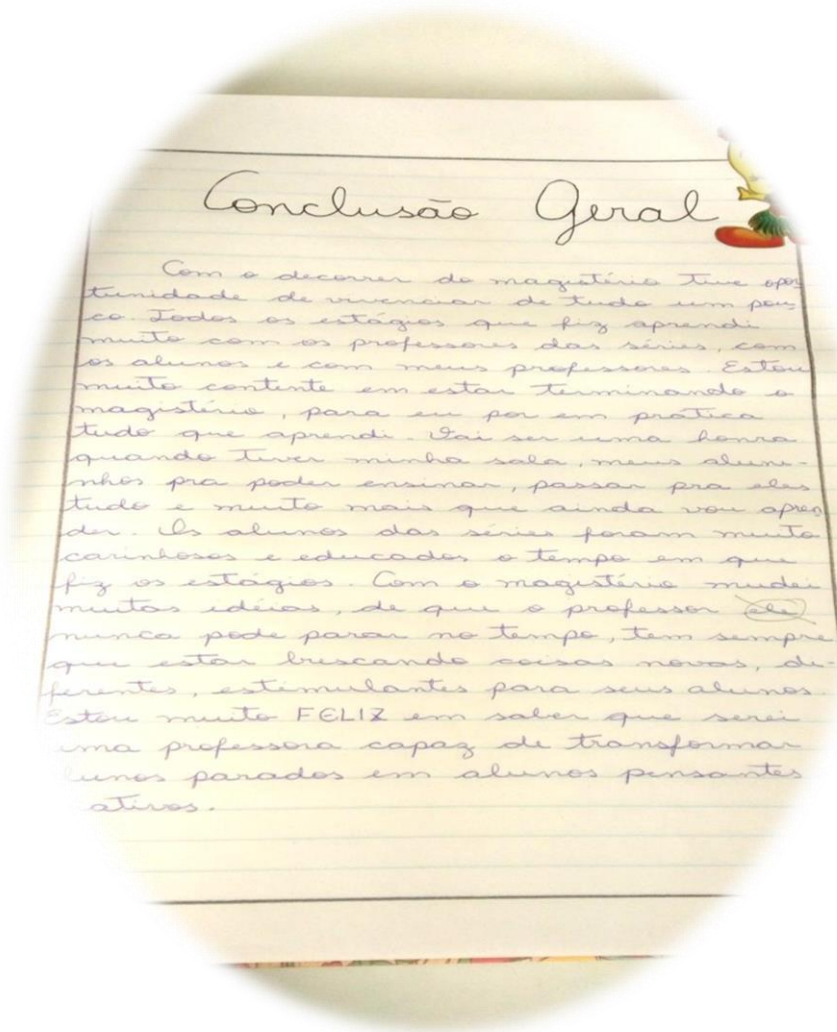 Conclusão Geral
Com o decorrer do magistério tive opor
tunidade de vivenciar de tudo um pou
co. Todos os estágios que fiz aprendi
muito com os professores das séries, com
os alunos e com meus professores. Estou
muito contente em estar terminando o
magistério, para eu por em prática
tudo que aprendi. Vai ser uma honra
quando tiver minha sala, meus aluni-
nhos pra poder ensinar, passar pra eles
tudo e muito mais que ainda vou apren
der. Os alunos das séries foram muito
carinhosos e educados o tempo em que
fiz os estágios. Com o magistério mudei
muitas idéias, de que o professor ele
nunca pode parar no tempo, tem sempre
que estar buscando coisas novas, di
ferentes, estimulantes para seus alunos.
Estou muito FELIZ em saber que serei
uma professora capaz de transformar
alunos parados em alunos pensantes
ativos.